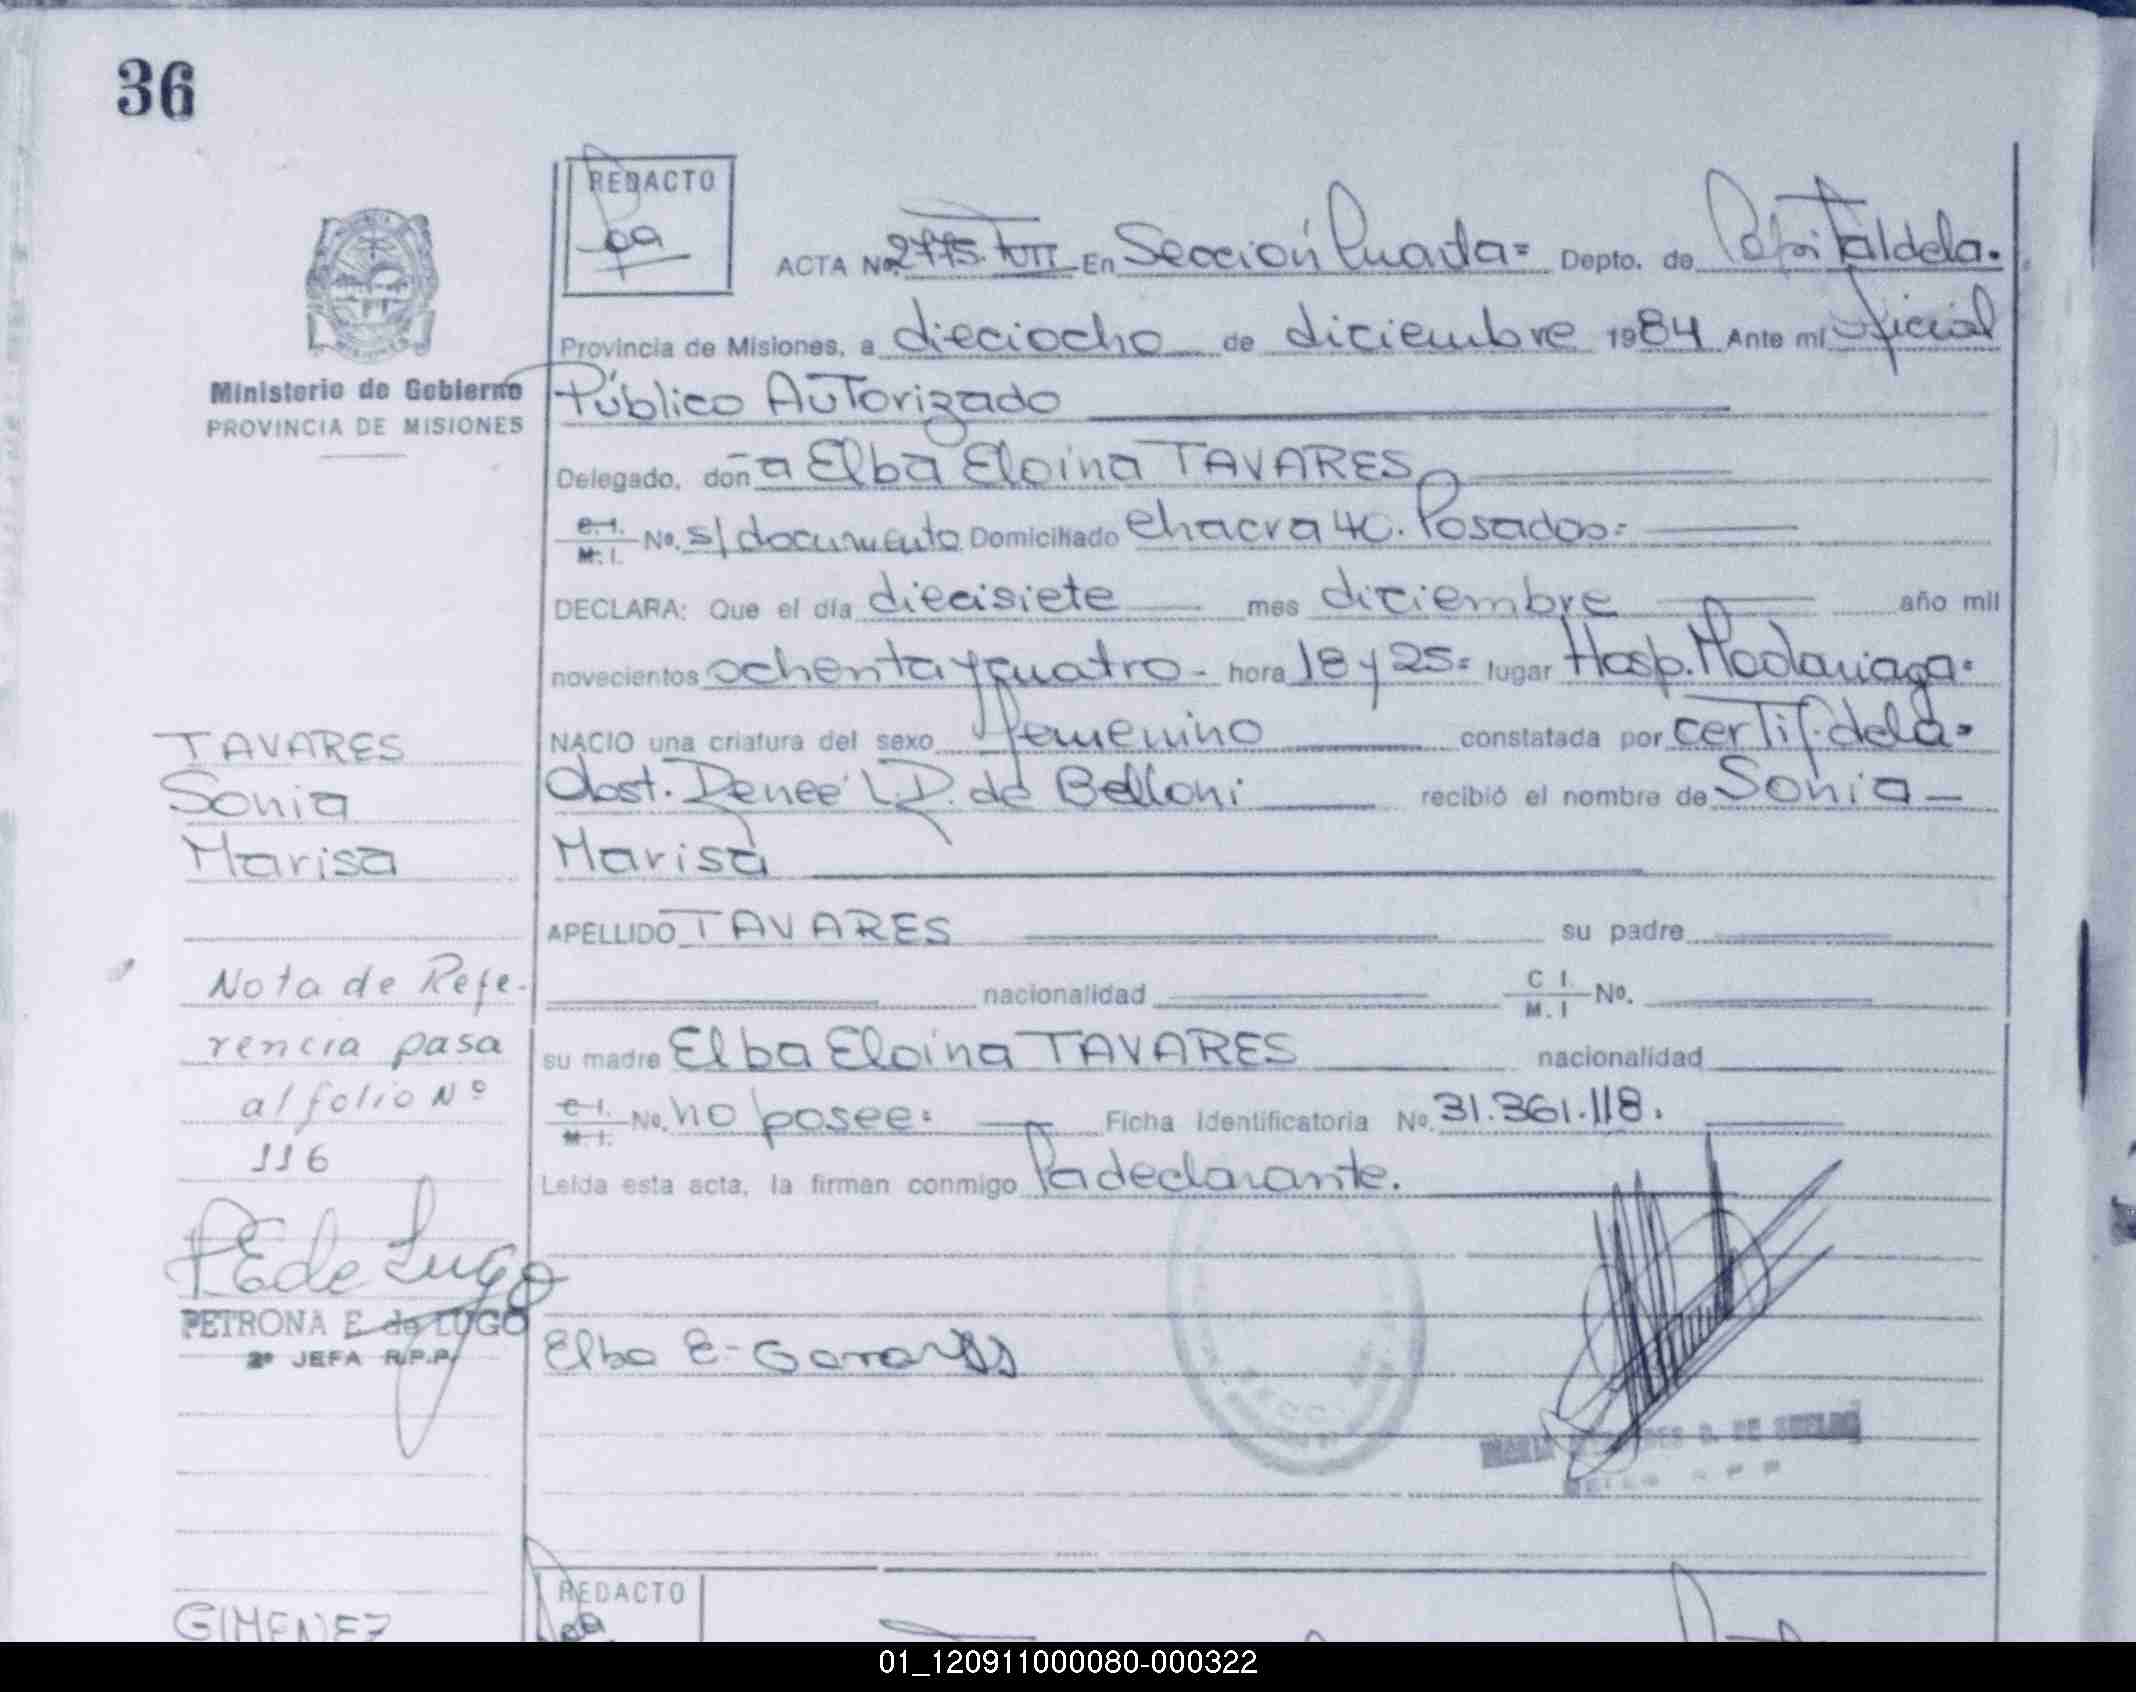 36
REDACTO
ACTA Nº 2775. TOTT En Sección Cuarta= Depto. de Capital de la.
Provincia de Misiones, a dieciocho de diciembre 1984 Ante mí oficial
Ministerio de Gobierno
PROVINCIA DE MISIONES
Público Autorizado
Delegado, doña Elba Eloina TAVARES
C.I. M.I. No. s/documento Domiciliado Chacra 40. Posadas=
DECLARA: Que el día diecisiete mes diciembre año mil
novecientos ochenta y cuatro - hora 18 y 25= lugar Hosp. Madariaga=
NACIO una criatura del sexo femenino constatada por certif. de la=
Obst. Renee L.D. de Belloni recibió el nombre de Sonia -
Marisa
TAVARES
Sonia
Marisa
APELLIDO TAVARES su padre
nacionalidad C I. M.I No.
su madre Elba Eloina TAVARES nacionalidad
C.I. M.I. No. no posee= Ficha Identificatoria No. 31.361.118.
Leída esta acta, la firman conmigo la declarante.
Nota de Refe-
rencia pasa
al folio Nº
116
PE de Lugo
PETRONA E. de LUGO
2ª JEFA R.P.P.
Elba E-
DE SUELDO
REDACTO
GIMENEZ
01_120911000080-000322